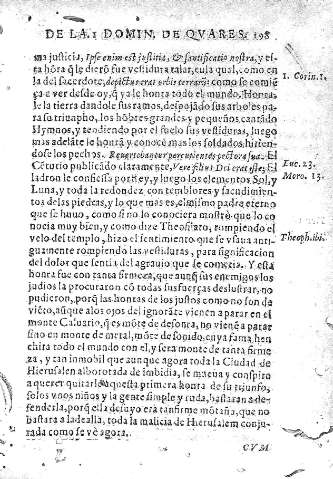 DE LA I DOMIN. DE QVARES. 198
ma justicia, Ipse enim est justitia, & santificatio nostra, y el-
ta hora q̃ le dierõ fue vestidura talar, cual, como en
la del sacerdote, orbis terrarũ: como se comiē
ça e ver desde oy, q̃ ya le honra todo el mundo. Honra-
le la tierra dandole sus ramos, despojãdo sus arboles pa-
ra su triunpho, los hõbres grandes y pequeños, cantãdo
Hymnos, y tendiendo por el suelo sus vestiduras, luego
mas adelãte le honrã y conocē mas los soldados, hiriē-
dose los pechos. El
Cēturio publicãdo claramente, Vere filius Dei erat iste. El
ladron le confiessa por Rey, y luego los elementos Sol, y
Luna, y toda la redondez con temblores y sacudimien-
tos de las piedras, y lo que mas es, el mismo padre eterno
que se huuo, como si no lo conociera mostrò que lo co-
nocia muy bien, y como dize Theofilato, rompiendo el
velo del templo, hizo el sentimiento que se vsaua anti-
guamente rompiendo las vestiduras, para significacion
del dolor que sentia del agrauio que se conocia. Y esta
hõra fue con tanta firmeza, que aunq̃ sus enemigos los
judios la procuraron cõ todas sus fuerças deslustrar, no
pudieron, porq̃ las honras de los justos como no son da
viēto, aũque a los ojos del ignorãte vienen a parar en el
monte Caluario, q̃ es mõte de desonra, no vienē a parar
sino en monte de metal, mõte de sonido, cuya fama hen
chira todo el mundo con el, y sera monte de tanta firme
za, y tan inmobil que aunque agora toda la Ciudad de
Hierusalen alborotada de imbidia, se mueua y conspire
a querer quitarle aquesta primera honra de su triunfo,
solos vnos niños y la gente simple y ruda, bastaran a de-
fenderla, porq̃ ella de suyo era tan firme mõtaña, que no
bastara a ladealla, toda la malicia de Hierusalem conju-
rada como se vè agora.
CVM
1. Corin. 1.
Luc. 23.
Theoph. ibi.